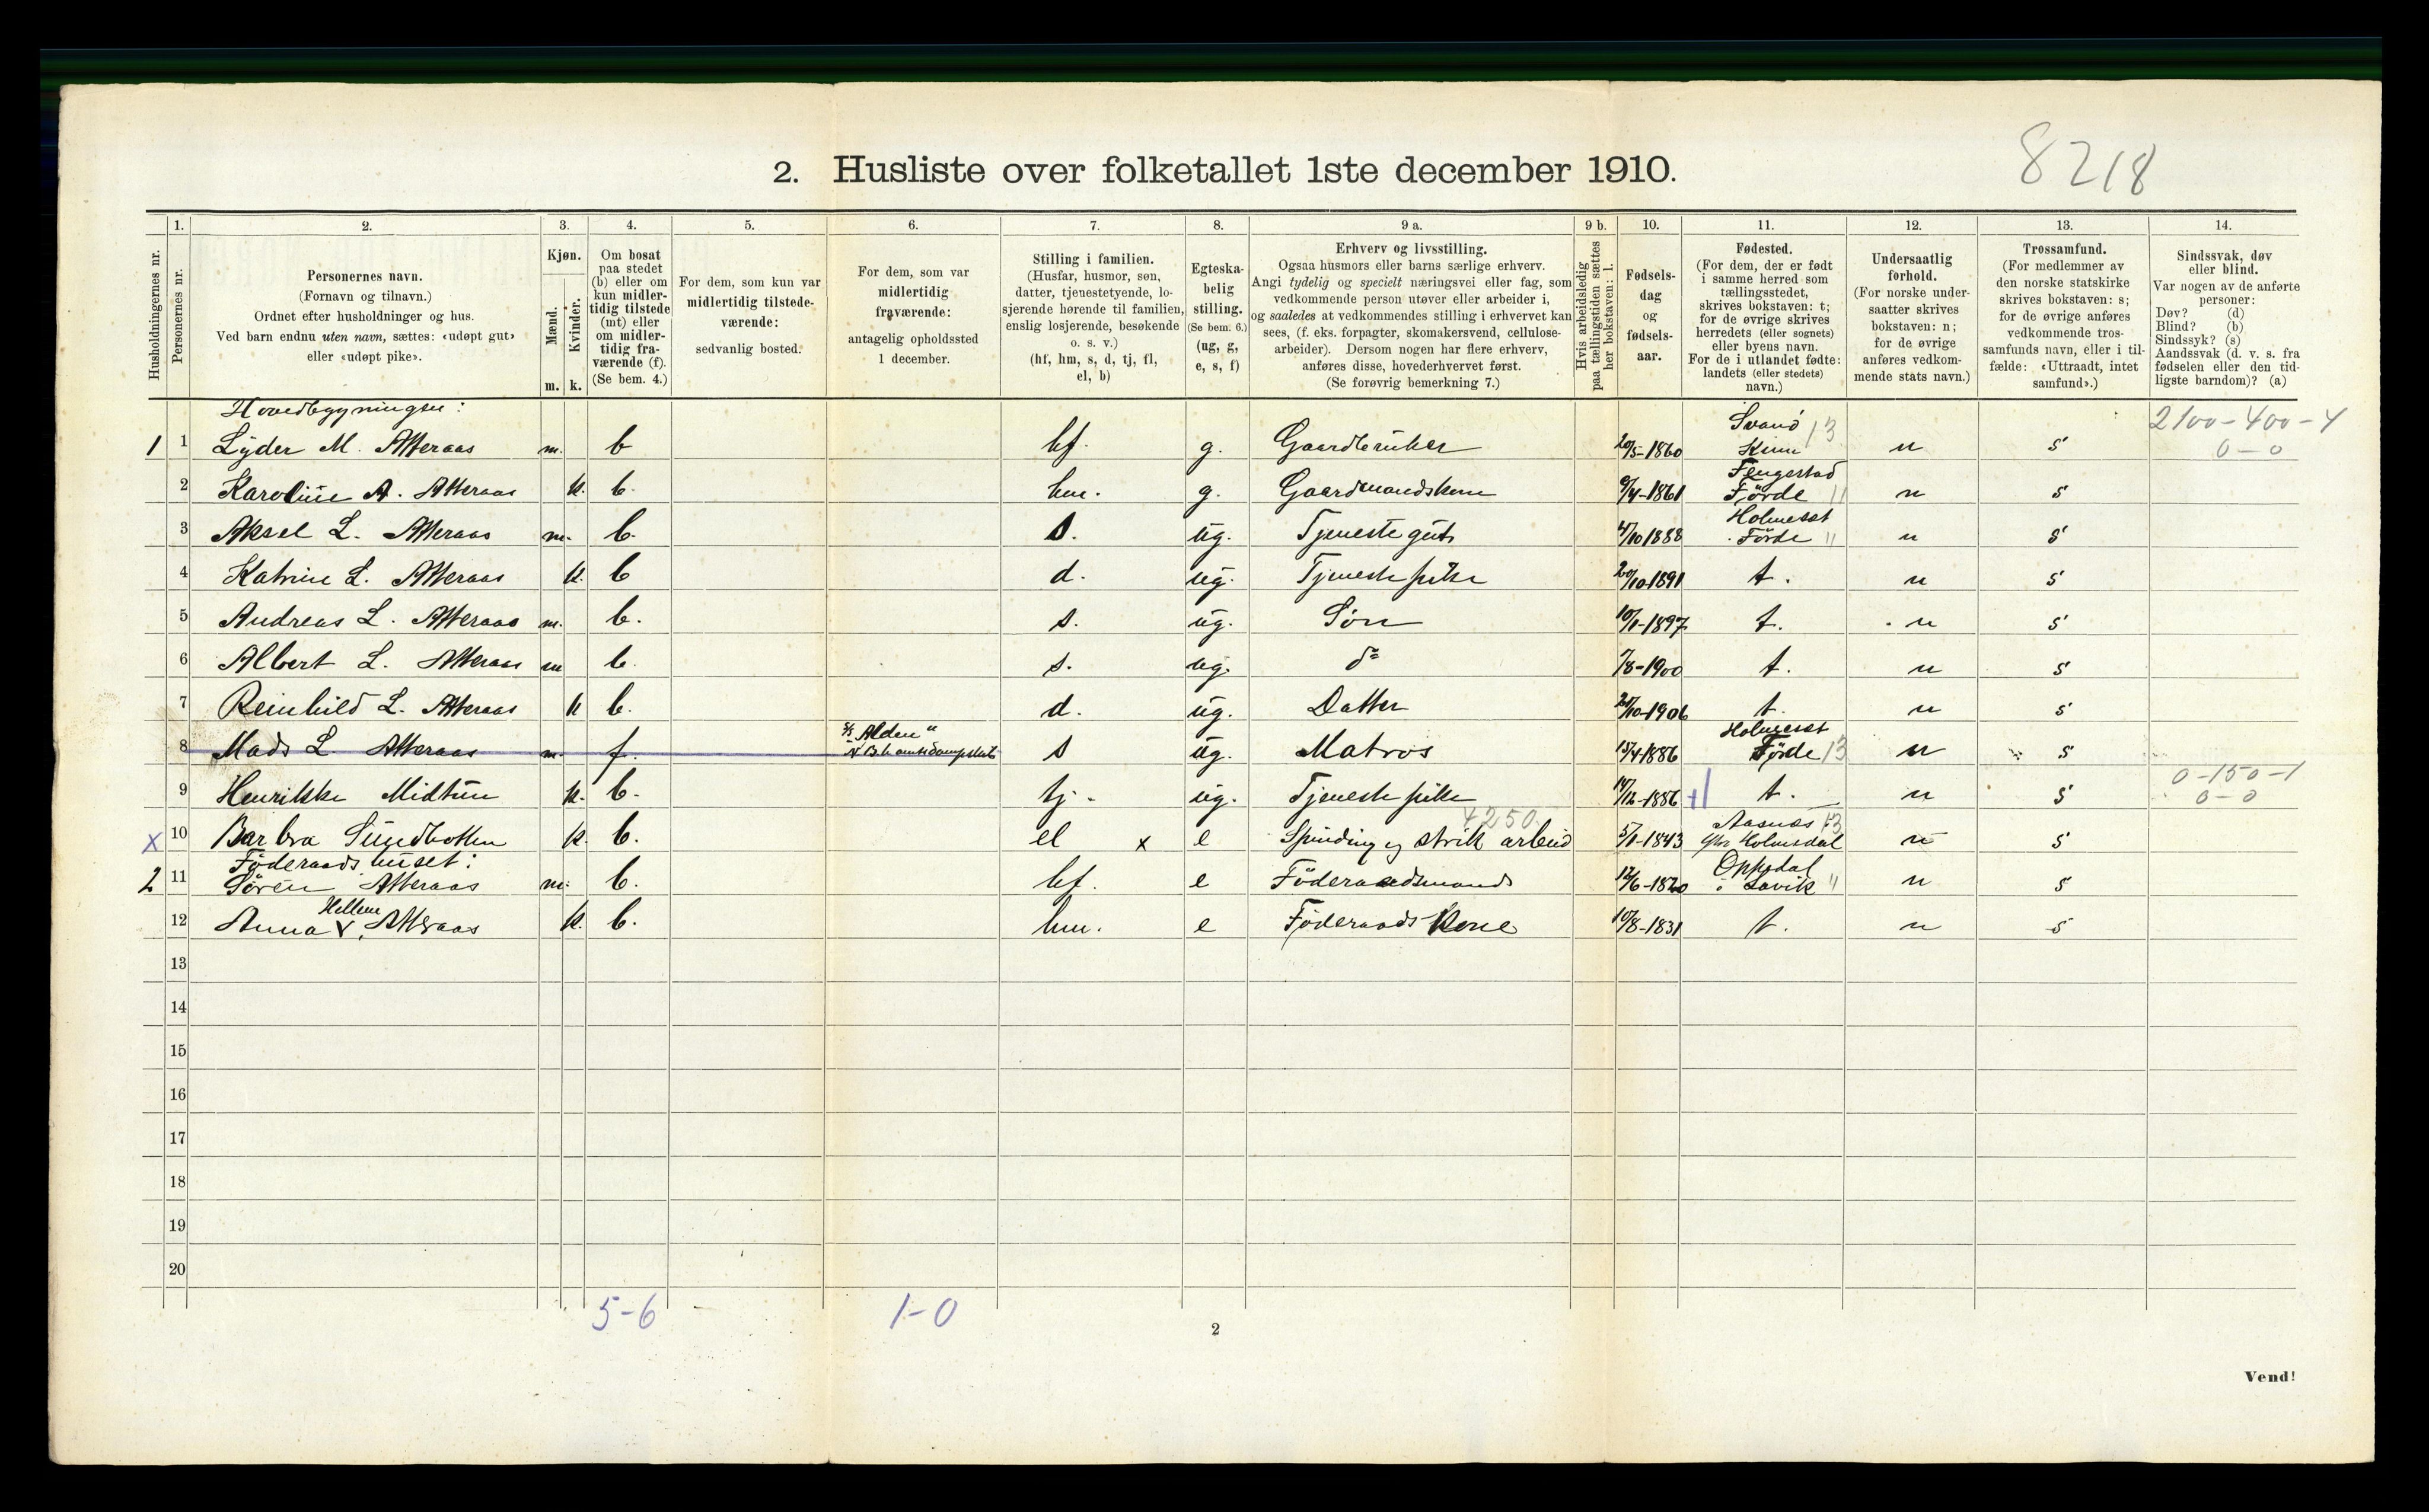 8218
2. Husliste over folketallet 1ste december 1910.
Husholdningernes nr.
1.
Personernes nr.
2.
Personernes navn.
(Fornavn og tilnavn.)
Ordnet efter husholdninger og hus.
Ved barn endnu uten navn, sættes: «udøpt gut»
eller «udøpt pike».
3.
Kjøn.
Mænd.
Kvinder.
m. k.
4.
Om bosat
paa stedet
(b) eller om
kun midler-
tidig tilstede
(mt) eller
om midler-
tidig fra-
værende (f).
(Se bem. 4.)
5.
For dem, som kun var
midlertidig tilstede-
værende:
sedvanlig bosted.
6.
For dem, som var
midlertidig
fraværende:
antagelig opholdssted
1 december.
7.
Stilling i familien.
(Husfar, husmor, søn,
datter, tjenestetyende, lo-
sjerende hørende til familien,
enslig losjerende, besøkende
o. s. v.)
(hf, hm, s, d, tj, fl,
el, b)
8.
Egteska-
belig
stilling.
(Se bem. 6.)
(ug, g,
e, s, f)
9 a.
Erhverv og livsstilling.
Ogsaa husmors eller barns særlige erhverv.
Angi tydelig og specielt næringsvei eller fag, som
vedkommende person utøver eller arbeider i,
og saaledes at vedkommendes stilling i erhvervet kan
sees, (f. eks. forpagter, skomakersvend, cellulose-
arbeider). Dersom nogen har flere erhverv,
anføres disse, hovederhvervet først.
(Se forøvrig bemerkning 7.)
9 b.
Hvis arbeidsledig
paa tællingstiden sættes
her bokstaven: l.
10.
Fødsels-
dag
og
fødsels-
aar.
11.
Fødested.
(For dem, der er født
i samme herred som
tællingsstedet,
skrives bokstaven: t;
for de øvrige skrives
herredets (eller sognets)
eller byens navn.
For de i utlandet fødte:
landets (eller stedets)
navn.)
12.
Undersaatlig
forhold.
(For norske under-
saatter skrives
bokstaven: n;
for de øvrige
anføres vedkom-
mende stats navn.)
13.
Trossamfund.
(For medlemmer av
den norske statskirke
skrives bokstaven: s;
for de øvrige anføres
vedkommende tros-
samfunds navn, eller i til-
fælde: «Uttraadt, intet
samfund».)
14.
Sindssvak, døv
eller blind.
Var nogen av de anførte
personer:
Døv? (d)
Blind? (b)
Sindssyk? (s)
Aandssvak (d. v. s. fra
fødselen eller den tid-
ligste barndom)? (a)
Hovedbygningen: Svanø 13 2100-400-4
1 1 Lyder M. Atteraas m. b hf. g. Gaardbruker 20/5-1860 Kinn n s 0-0
Fengestad
2 Karoline A. Atteraas k. b. hm. g. Gaardmandskone 9/4-1861 Førde 11 n s
Holmeset
3 Aksel L. Atteraas m. b. s. ug. Tjenestegut 4/10 1888 Førde 11 n s
4 Katrine L. Atteraas k. b d. ug. Tjenestepike 20/10-1891 t. n s
5 Andreas L. Atteraas m. b. s. ug. Søn 10/1-1897 t. n s
6 Albert L. Atteraas m b. s. ug. do 7/8-1900 t. n s
7 Reinhild L. Atteraas k b. d. ug. Datter 21/10-1906 t. n s
S/S "Alden" Holmeset
8 Mads L. Atteraas m. f. amtsdampskib s ug. Matros 15/4 1886 Førde 13 n s
0-150-1
9 Henrikke Midtun k. b. tj. ug. Tjenestepike 14/12-1886 +1 t. n s 0-0
+250. Aasnæs 13
x 10 Barbra Sundbotten k. b. el x e Spinding og strik arbeid 5/1-1843 Holmedal n s
Føderaadshuset: Oppedal
2 11 Søren Atteraas m. b. hf. e Føderaadsmand 12/6-1820 i Lavik 11 n s
Hellene
12 Anna v. Atteraas k. b. hm. e Føderaads Kone 10/8-1831 t. n s
13
14
15
16
17
18
19
20
5-6 1-0
2
Vend!